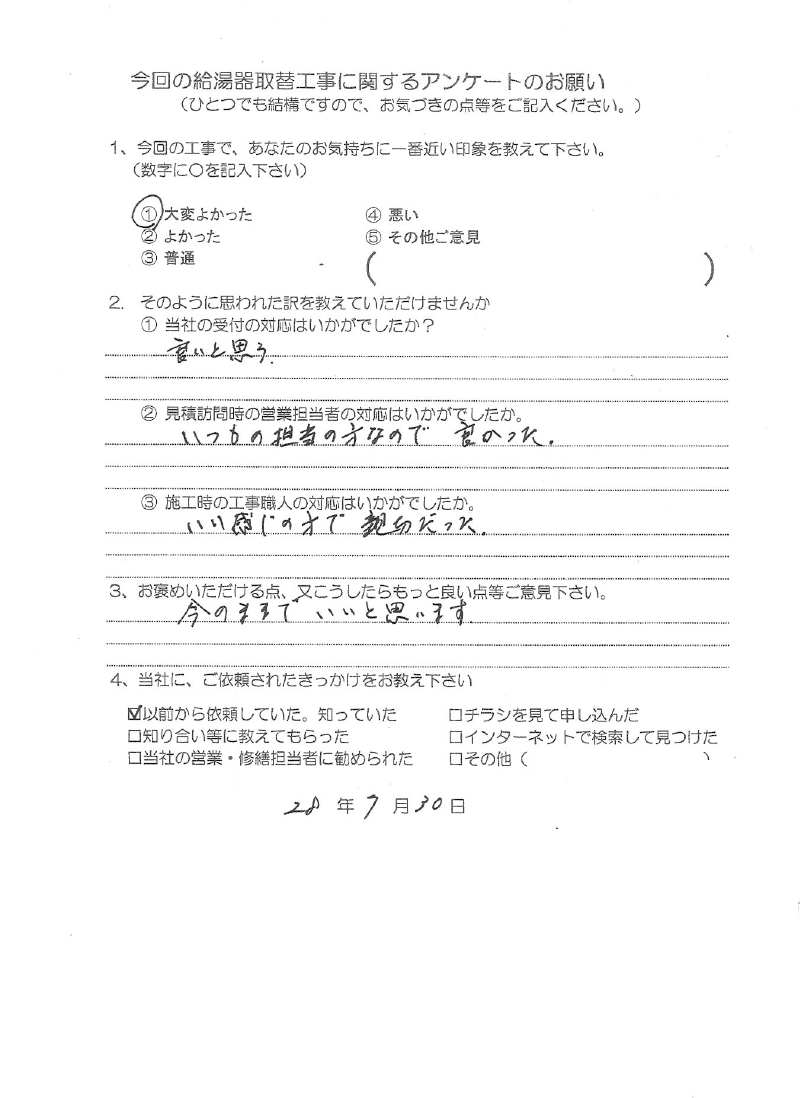 今回の給湯器取替工事に関するアンケートのお願い
（ひとつでも結構ですので、お気づきの点等をご記入ください。）
1、今回の工事で、あなたのお気持ちに一番近い印象を教えて下さい。
（数字に〇を記入下さい）
① 大変よかった ④ 悪い
② よかった ⑤ その他ご意見
③ 普通 ( )
2. そのように思われた訳を教えていただけませんか
① 当社の受付の対応はいかがでしたか？
良いと思う.
② 見積訪問時の営業担当者の対応はいかがでしたか。
いつもの担当の方なので 良かった.
③ 施工時の工事職人の対応はいかがでしたか。
いい感じの方で 親切だった.
3、お褒めいただける点、又こうしたらもっと良い点等ご意見下さい。
今のままで いいと思います
4、当社に、ご依頼されたきっかけをお教え下さい
☑以前から依頼していた。知っていた □チラシを見て申し込んだ
□知り合い等に教えてもらった □インターネットで検索して見つけた
□当社の営業・修繕担当者に勧められた □その他（ ）
28 年 7 月 30 日